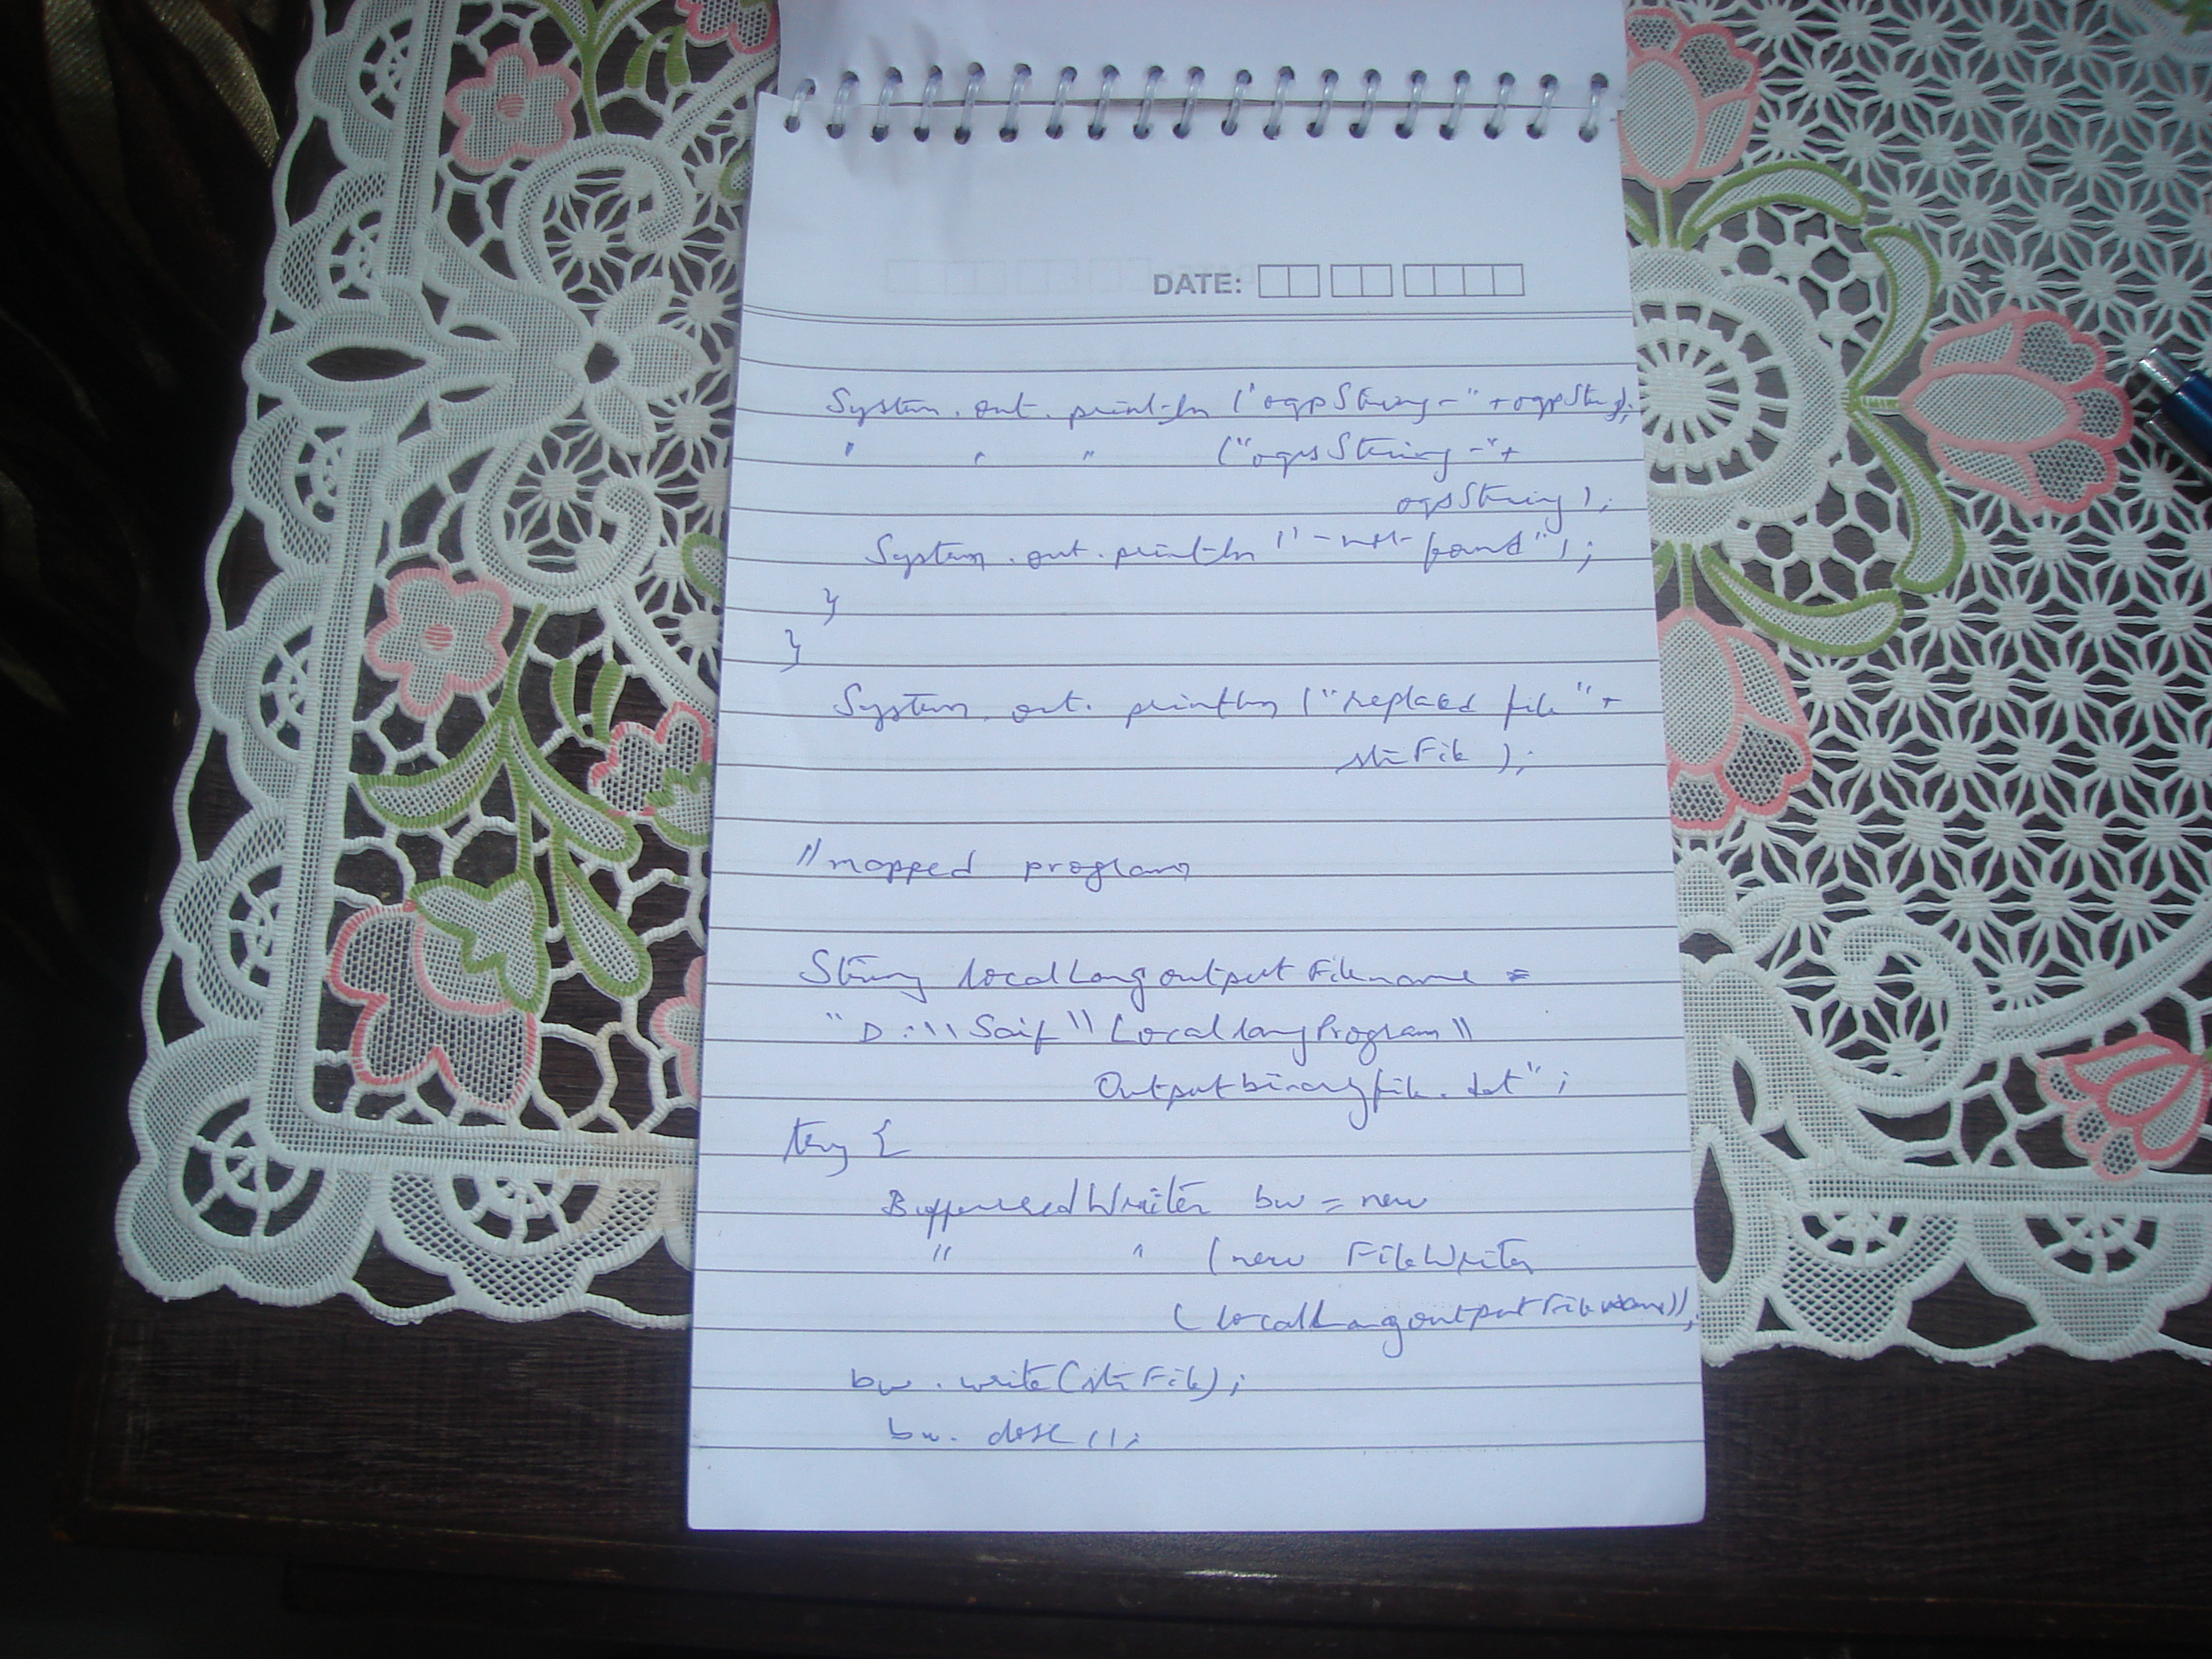 DATE:
System.out.println("ogpString-"+ogpString);
" " " ("ogsString-"+
ogsString);
System.out.println("-not found");
}
}
System.out.println("replaced file"+
strFile);
//mapped program
String localLangoutputFilename =
"D:\\Saif\\LocallangProgram\\
Outputbinaryfile.txt";
try {
BufferredWriter bw = new
" " (new FileWriter
(localLangoutputFilename));
bw.write(strFile);
bw.close();